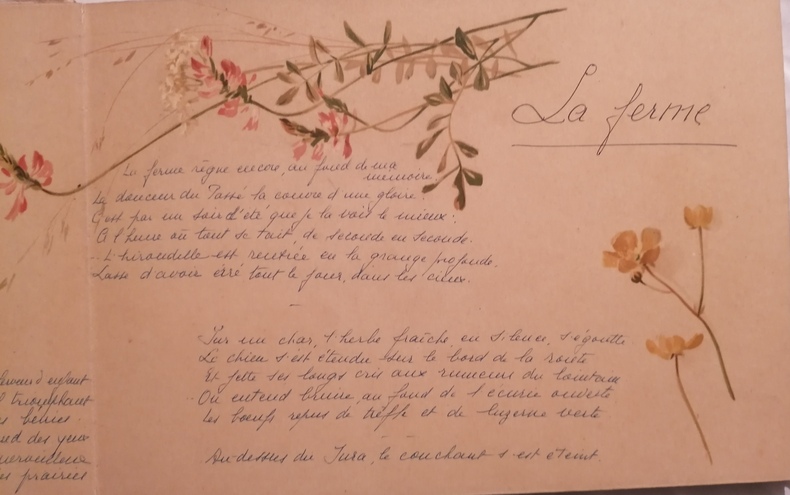 La ferme
La ferme règne encore, au fond de ma
mémoire.
La douceur du Passé la couvre d'une gloire.
C'est par un soir d'été que je la vois le mieux:
A l'heure où tout se tait, de seconde en seconde.
L'hirondelle est rentrée en la grange profonde.
Lasse d'avoir erré tout le jour, dans les cieux.
Sur un char, l'herbe fraîche, en silence, s'égoutte
Le chien s'est étendu sur le bord de la route
Et jette ses longs cris aux rumeurs du lointain
On entend bruire au fond de l'écurie ouverte
Les boeufs repus de trèfle et de luzerne verte
Au-dessus du Jura, le couchant s'est éteint.
enfant
triomphant
bénies.
des yeux
prairies